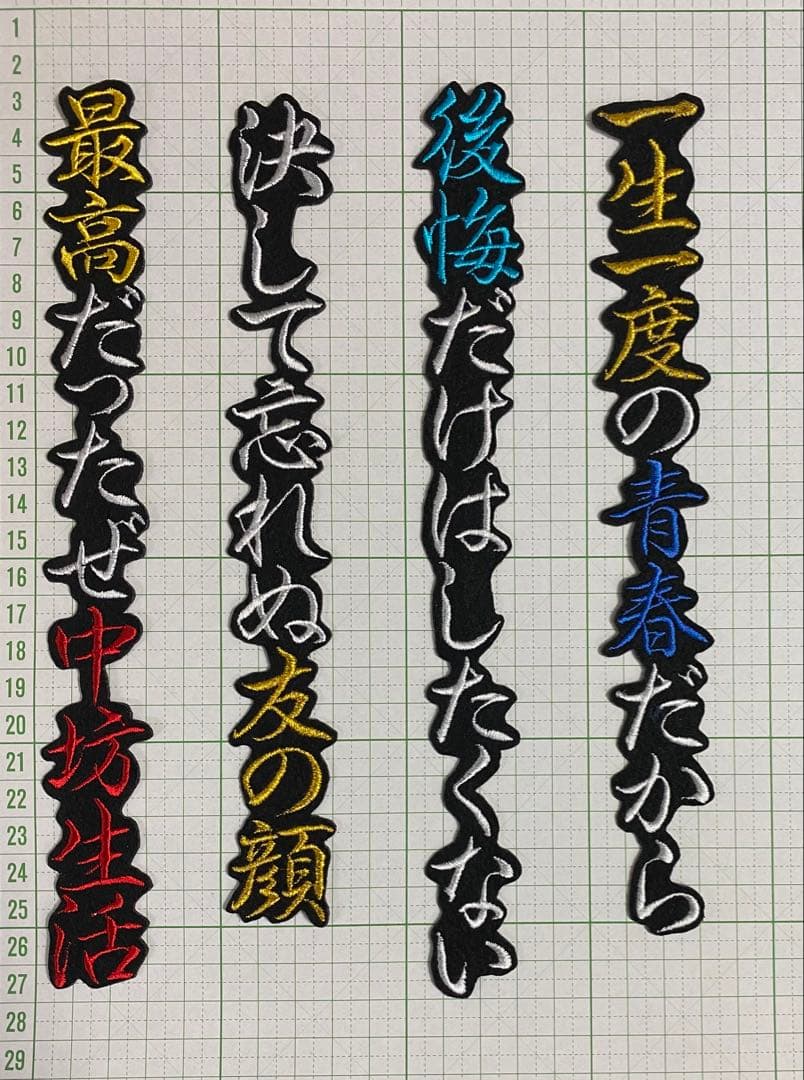 一生一度の青春だから
後悔だけはしたくない
決して忘れぬ友の顔
最高だったぜ中坊生活
1
2
3
4
5
6
7
8
9
10
11
12
13
14
15
16
17
18
19
20
21
22
23
24
25
26
27
28
29